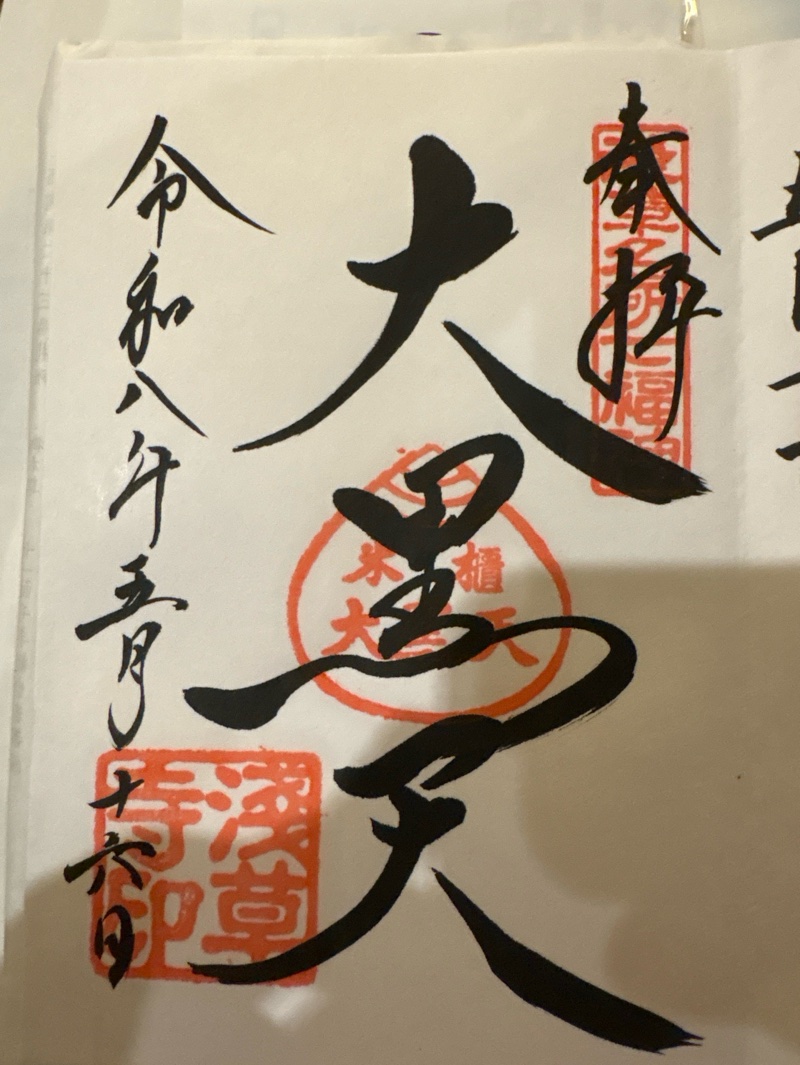 奉拝
浅草名所七福神
大黒天
米櫃
大黒天
令和八年五月十六日
淺草
寺印